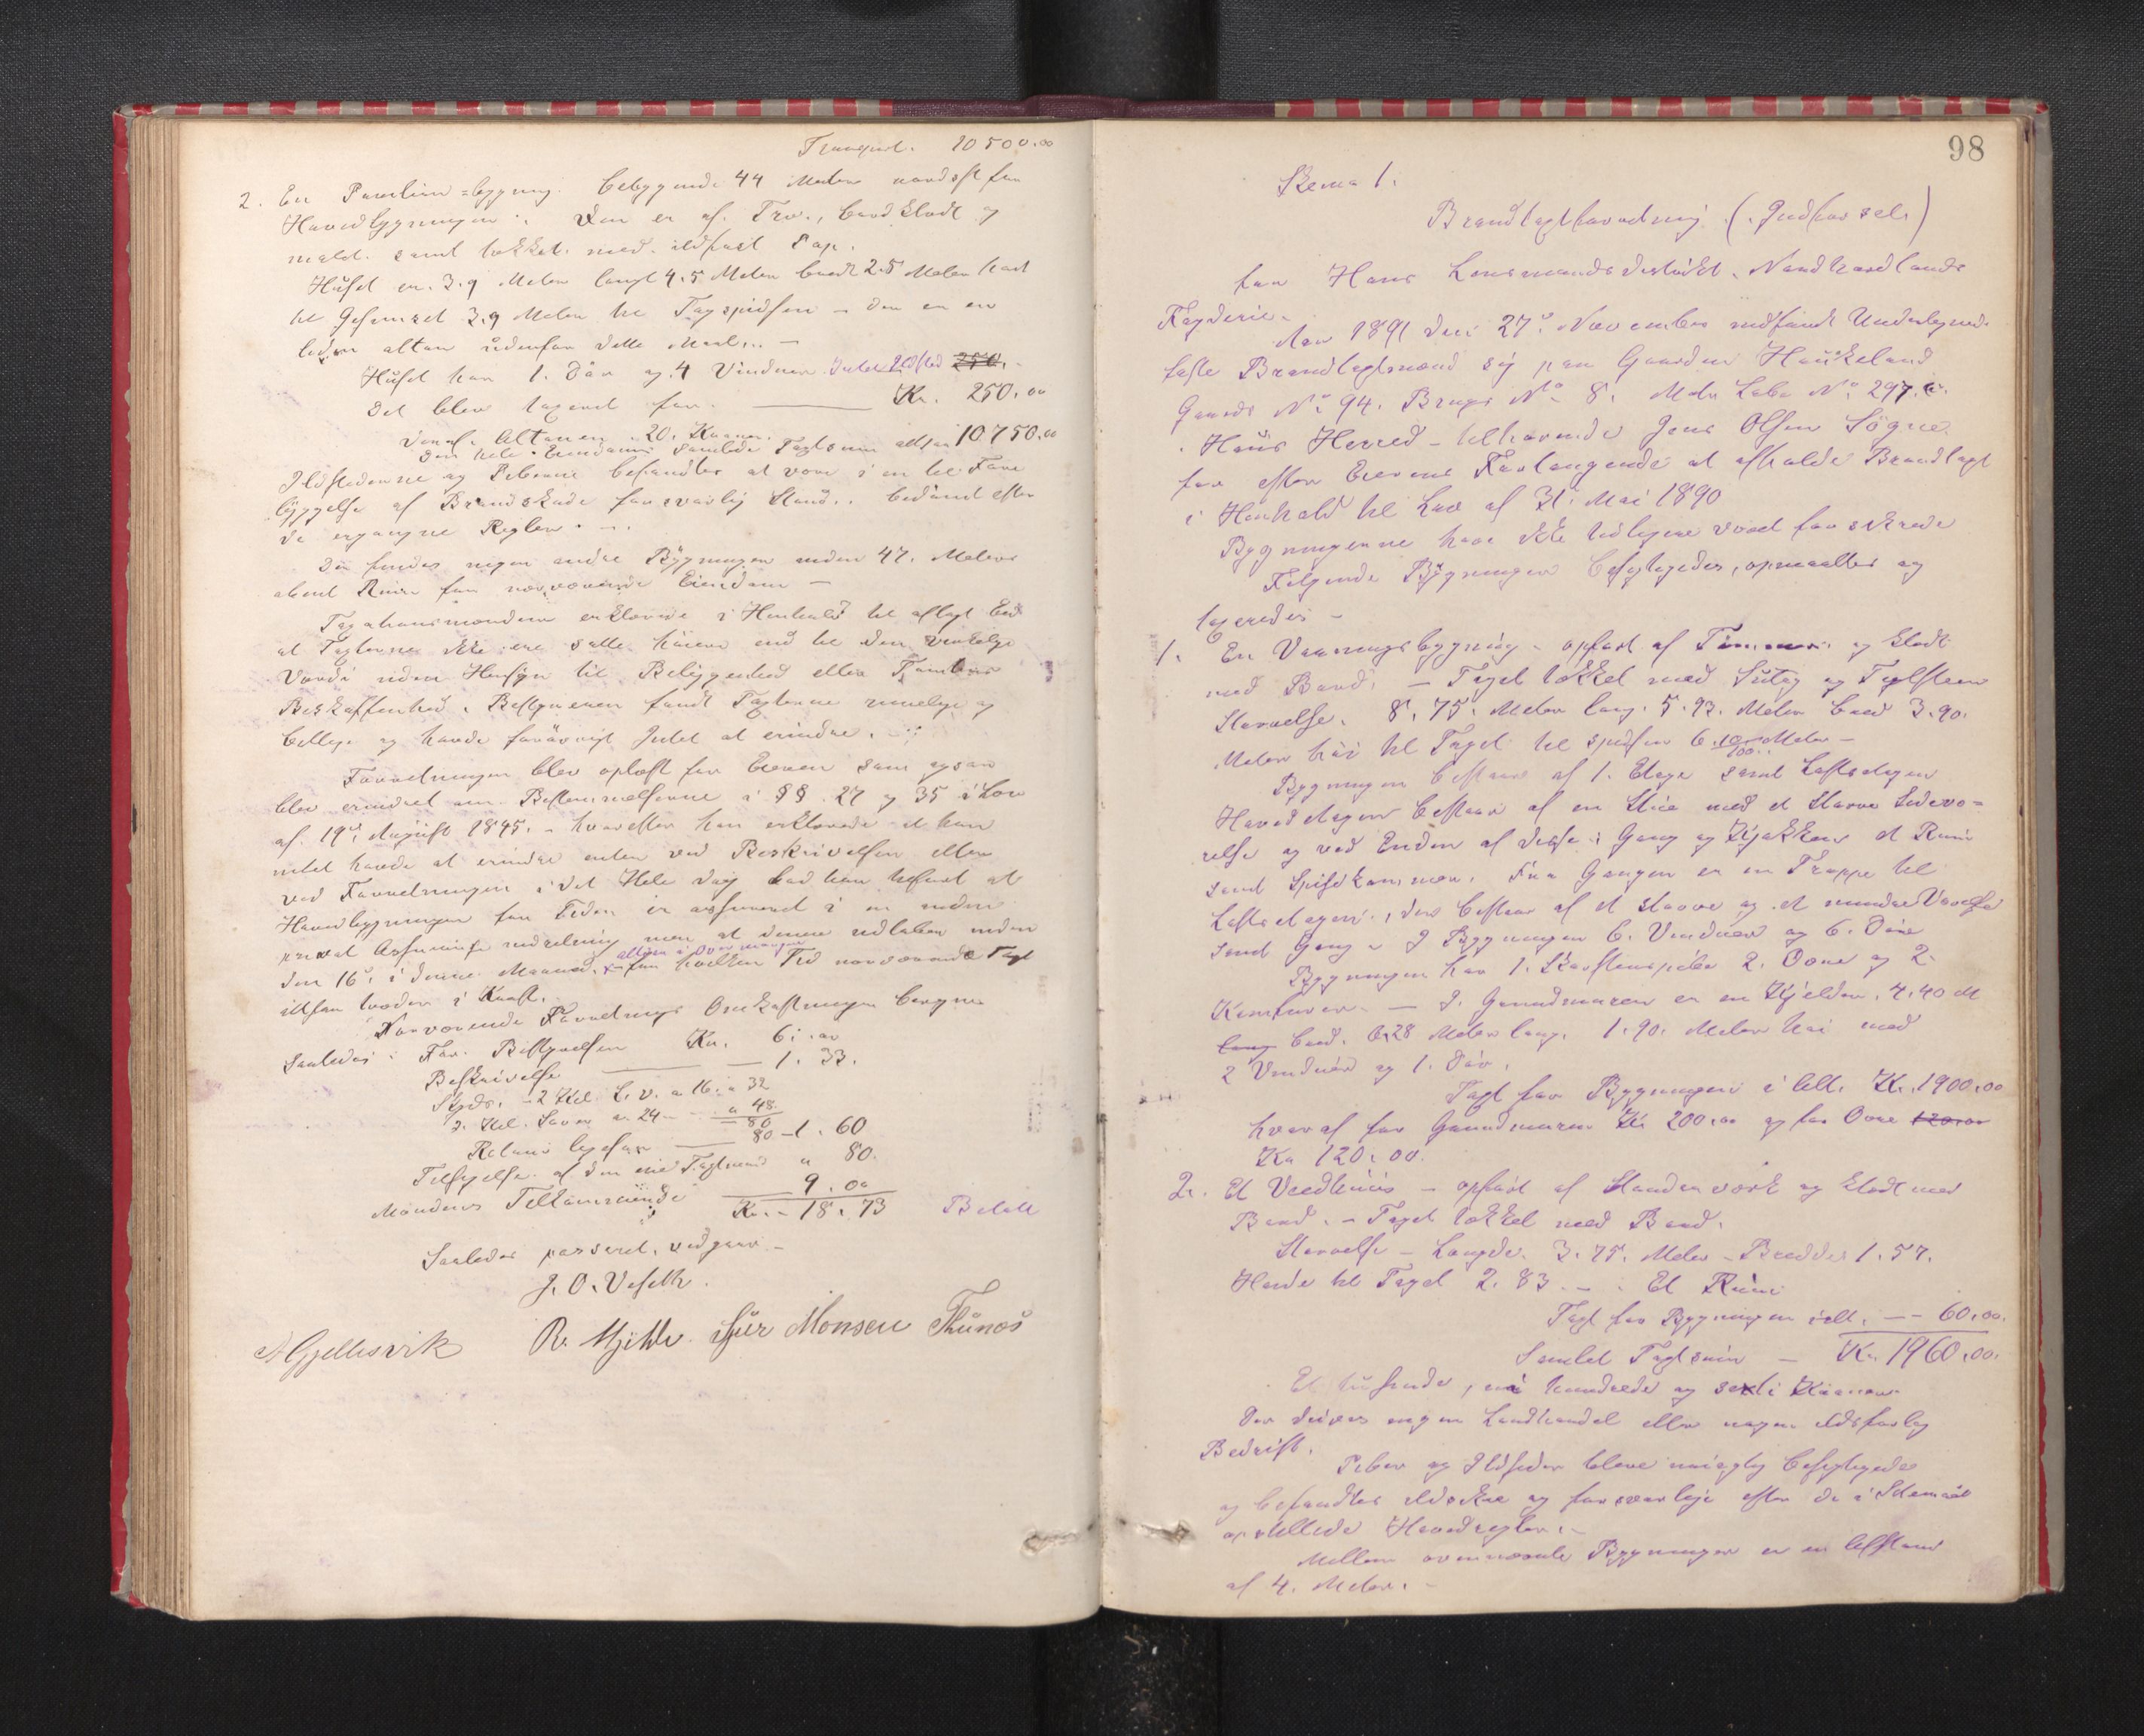 Transport. 10500.00
2. En Pavilion=bygning. bebyggende 44 Meter nordost for
Hovedbygningen. Den er af Træ, bordklædt og
malt. samt tækket med ildfast Pap.
Huset er 3.9 Meter langt 4.5 Meter bredt 2.5 Meter høit
til Gesimset 3.9 Meter til Tagspidsen – der er en
liden altan udenfor dette Maal. –
Huset har 1. Dør og 4 Vinduer. Intet Ildsted
Det blev taxeret for. Kr. 250.00
Deraf Altanen 20. Kroner.
Den hele Eiendoms samlede Taxtsum altsaa 10750.00
Ildstederne og Piberne befandtes at være i en til Fore
byggelse af Brandskade forsvarlig Stand. bedømt efter
de ergangne Regler.
Der findes ingen andre Bygninger inden 47. Meters
afstand Ruin fra nærværende Eiendom –
Taxationsmændene erklærede i Henhold til aflagt Eed
at Taxterne ikke ere satte høiere end til den virkelige
Værdi uden Hensyn til Beliggenhed eller Tomtens
Beskaffenhed. Bestyreren fandt Taxterne rimelige og
billige og havde forøvrigt Intet at erindre.
Forretningen blev oplæst for Eieren som ogsaa
blev erindret om Bestemmelserne i §§ 27 og 35 i Lov
af 19de August 1845. – hvorefter han erklærede at han
intet havde at erindre enten ved Beskrivelsen eller
ved Forretningen i det Hele dog bad han tilført at
Hovedbygningen for Tiden er assureret i en anden
privat Assurance indretning men at denne udløber inden
den 16de i denne Maaned, fra hvilken Tid nærværende Taxt
altsaa træder i Kraft.
Nærværende Forretnings Omkostninger beregnes
saaledes: For Bestyrelsen Kr. 6.00
Beskrivelse 1. 33.
Skyds. – 2 Kil. L. v. a 16. " 32
2. Kil. Søvei a 24 – " 48.
80
Retour ligesaa 80 – 1. 60
Tilsigelse af den ene Taxtmand " 80.
Mændenes Tilkommende 9.00
Kr. – 18.73 Betalt
Saaledes passeret, vedgaar –
J. O. Veseth.
A Gjellesvik R. Mjelde. Sjur Monsen Thunæs
98
Skema 1.
Brandtaxtforretning (Indførsel.)
for Haus Lensmandsdistrikt, Nordhordlands
Fogderie.
Aar 1891 den 27de November indfandt Undertegnede
faste Brandtaxtmænd sig paa Gaarden Haukeland
Gaards No 94. Brugs No 8. Matr Løbe No 297.c.
Haus Herred – tilhørende Jens Olsen Søgne
for efter Eierens Forlangende at afholde Brandtaxt
i Henhold til Lov af 31. Mai 1890
Bygningerne have ikke tidligere været forsikrede
Følgende Bygninger besigtigedes, opmaaltes og
taxeredes –
1. En Vaaningsbygning – opført af Tømmer og klædt
med Bord. – Taget tækket med Sutag og Taglsteen
Størrelse. 8.75. Meter lang. 5.93. Meter bred 3.90.
Meter høi til Taget. til spidsen 6. Meter –
Bygningen bestaar af 1. Etage samt Loftsetagen
Hovedetagen bestaar af en Stue med et større Sideværelse
og ved Enden af disse i Gang og Kjøkken et Rum
samt Spisekammer. Fra Gangen er en Trappe til
Loftsetagen, der bestaar af et større og et mindre Værelse
samt Gang – I Bygningen 6. Vinduer og 6. Døre
Bygningen har 1. Skorstenspibe 2. Ovne og 2.
Kaminer. – I Grundmuren er en Kjelder, 4.40 M
lang bred. 6.28 Meter lang. 1.90. Meter høi med
2 Vinduer og 1. Dør.
Taxt for Bygningen i Alt. Kr. 1900.00
hvoraf for Grundmuren Kr 200.00 og for Ovne 120.00
Kr 120.00.
2. Et Vedhuus – opført af Stenderværk og klædt med
Bord. – Taget tækket med Bord.
Størrelse – Længde. 3.75. Meter – Bredde 1.57.
Høide til Taget 2.83. – Et Rum
Taxt for Bygningen ialt. – 60.00.
Samlet Taxtsum – Kr. 1960.00.
Et tusende, ni hundrede og sexti Kroner.
Der drives ingen Landhandel eller nogen ildsfarlig
Bedrift.
Piber og Ildsteder bleve nøiagtig besigtigede
og befandtes ildsikre og forsvarlige efter de i Skemaet
opstillede Hovedregler.
Mellem ovennævnte Bygninger er en Afstand
af 4. Meter.